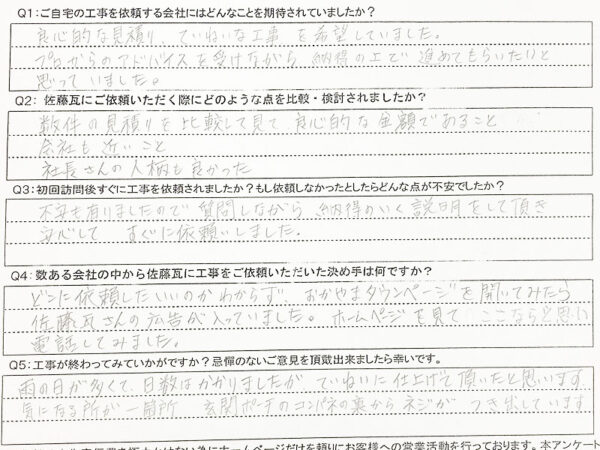 Q1：ご自宅の工事を依頼する会社にはどんなことを期待されていましたか？
良心的な見積り、ていねいな工事を希望していました。
プロからのアドバイスを受けながら、納得の上で進めてもらいたいと
思っていました。
Q2：佐藤瓦にご依頼いただく際にどのような点を比較・検討されましたか？
数件の見積りを比較して見て良心的な金額であること
会社も近いこと
社長さんの人柄も良かった
Q3：初回訪問後すぐに工事を依頼されましたか？もし依頼しなかったとしたらどんな点が不安でしたか？
不安も有りましたので質問しながら納得のいく説明をして頂き
安心して すぐに依頼いしました。
Q4：数ある会社の中から佐藤瓦に工事をご依頼いただいた決め手は何ですか？
どこに依頼したらいいのかわからず、おかやまタウンページを開いてみたら
佐藤瓦さんの広告が入っていました。ホームページを見て ここならと思い
電話してみました。
Q5：工事が終わってみていかがですか？忌憚のないご意見を頂戴出来ましたら幸いです。
雨の日が多くて、日数はかかりましたが ていねいに仕上げて頂いたと思います
気になる所が一箇所 玄関ポーチのコンパネの裏からネジが つき出しています
ホームページだけを頼りにお客様への営業活動を行っております。本アンケート